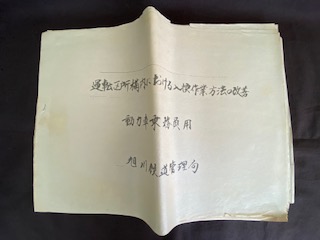 運転区所構内における入換作業方法の改善
動力車乗務員用
旭川鉄道管理局